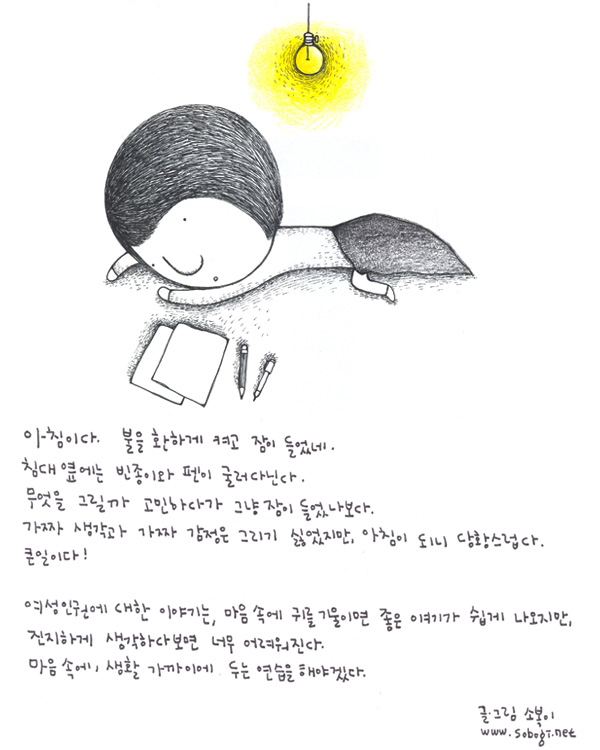 아침이다. 불을 환하게 켜고 잠이 들었네.
침대 옆에는 빈종이와 펜이 굴러다닌다.
무엇을 그릴까 고민하다가 그냥 잠이 들었나보다.
가짜 생각과 가짜 감정은 그리기 싫었지만, 아침이 되니 당황스럽다.
큰일이다!
여성인권에 대한 이야기는, 마음 속에 귀를 기울이면 좋은 이야기가 쉽게 나오지만,
진지하게 생각하다보면 너무 어려워진다.
마음 속에, 생활 가까이에 두는 연습을 해야겠다.
글·그림 소복이
www.sobogi.net